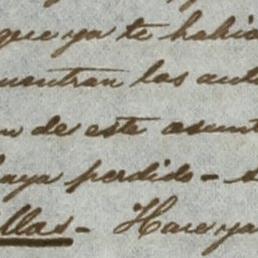 que ya te habia
cuentran los aut
n de este asunt
haya perdido – s
llas – Hace ya